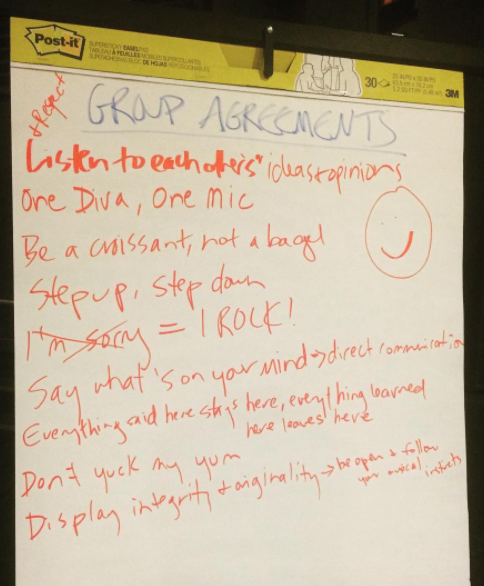 Post-it
SUPERSTICKY EASEL PAD
TABLEAU À FEUILLES MOBILES SUPERCOLLANTES
SUPERADHERIBLE BLOC DE HOJAS REPOSICIONABLES
30
3M
+ Respect
GROUP AGREEMENTS
Listen to each others' ideas + opinions
One Diva, One Mic
Be a croissant, not a bagel
Step up, step down
I'm sorry = I ROCK!
Say what's on your mind → direct communication
Everything said here stays here, everything learned
here leaves here
Don't yuck my yum
Display integrity + originality → be open & follow
your musical instincts